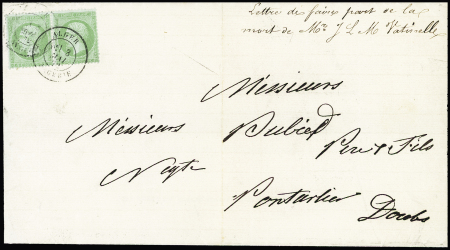 Lettre de faire part de la
mort de Mr J L M Vatinelle
ALGER
Messieurs
Messieurs
Dubied Père & Fils
Pontarlier
Doubs